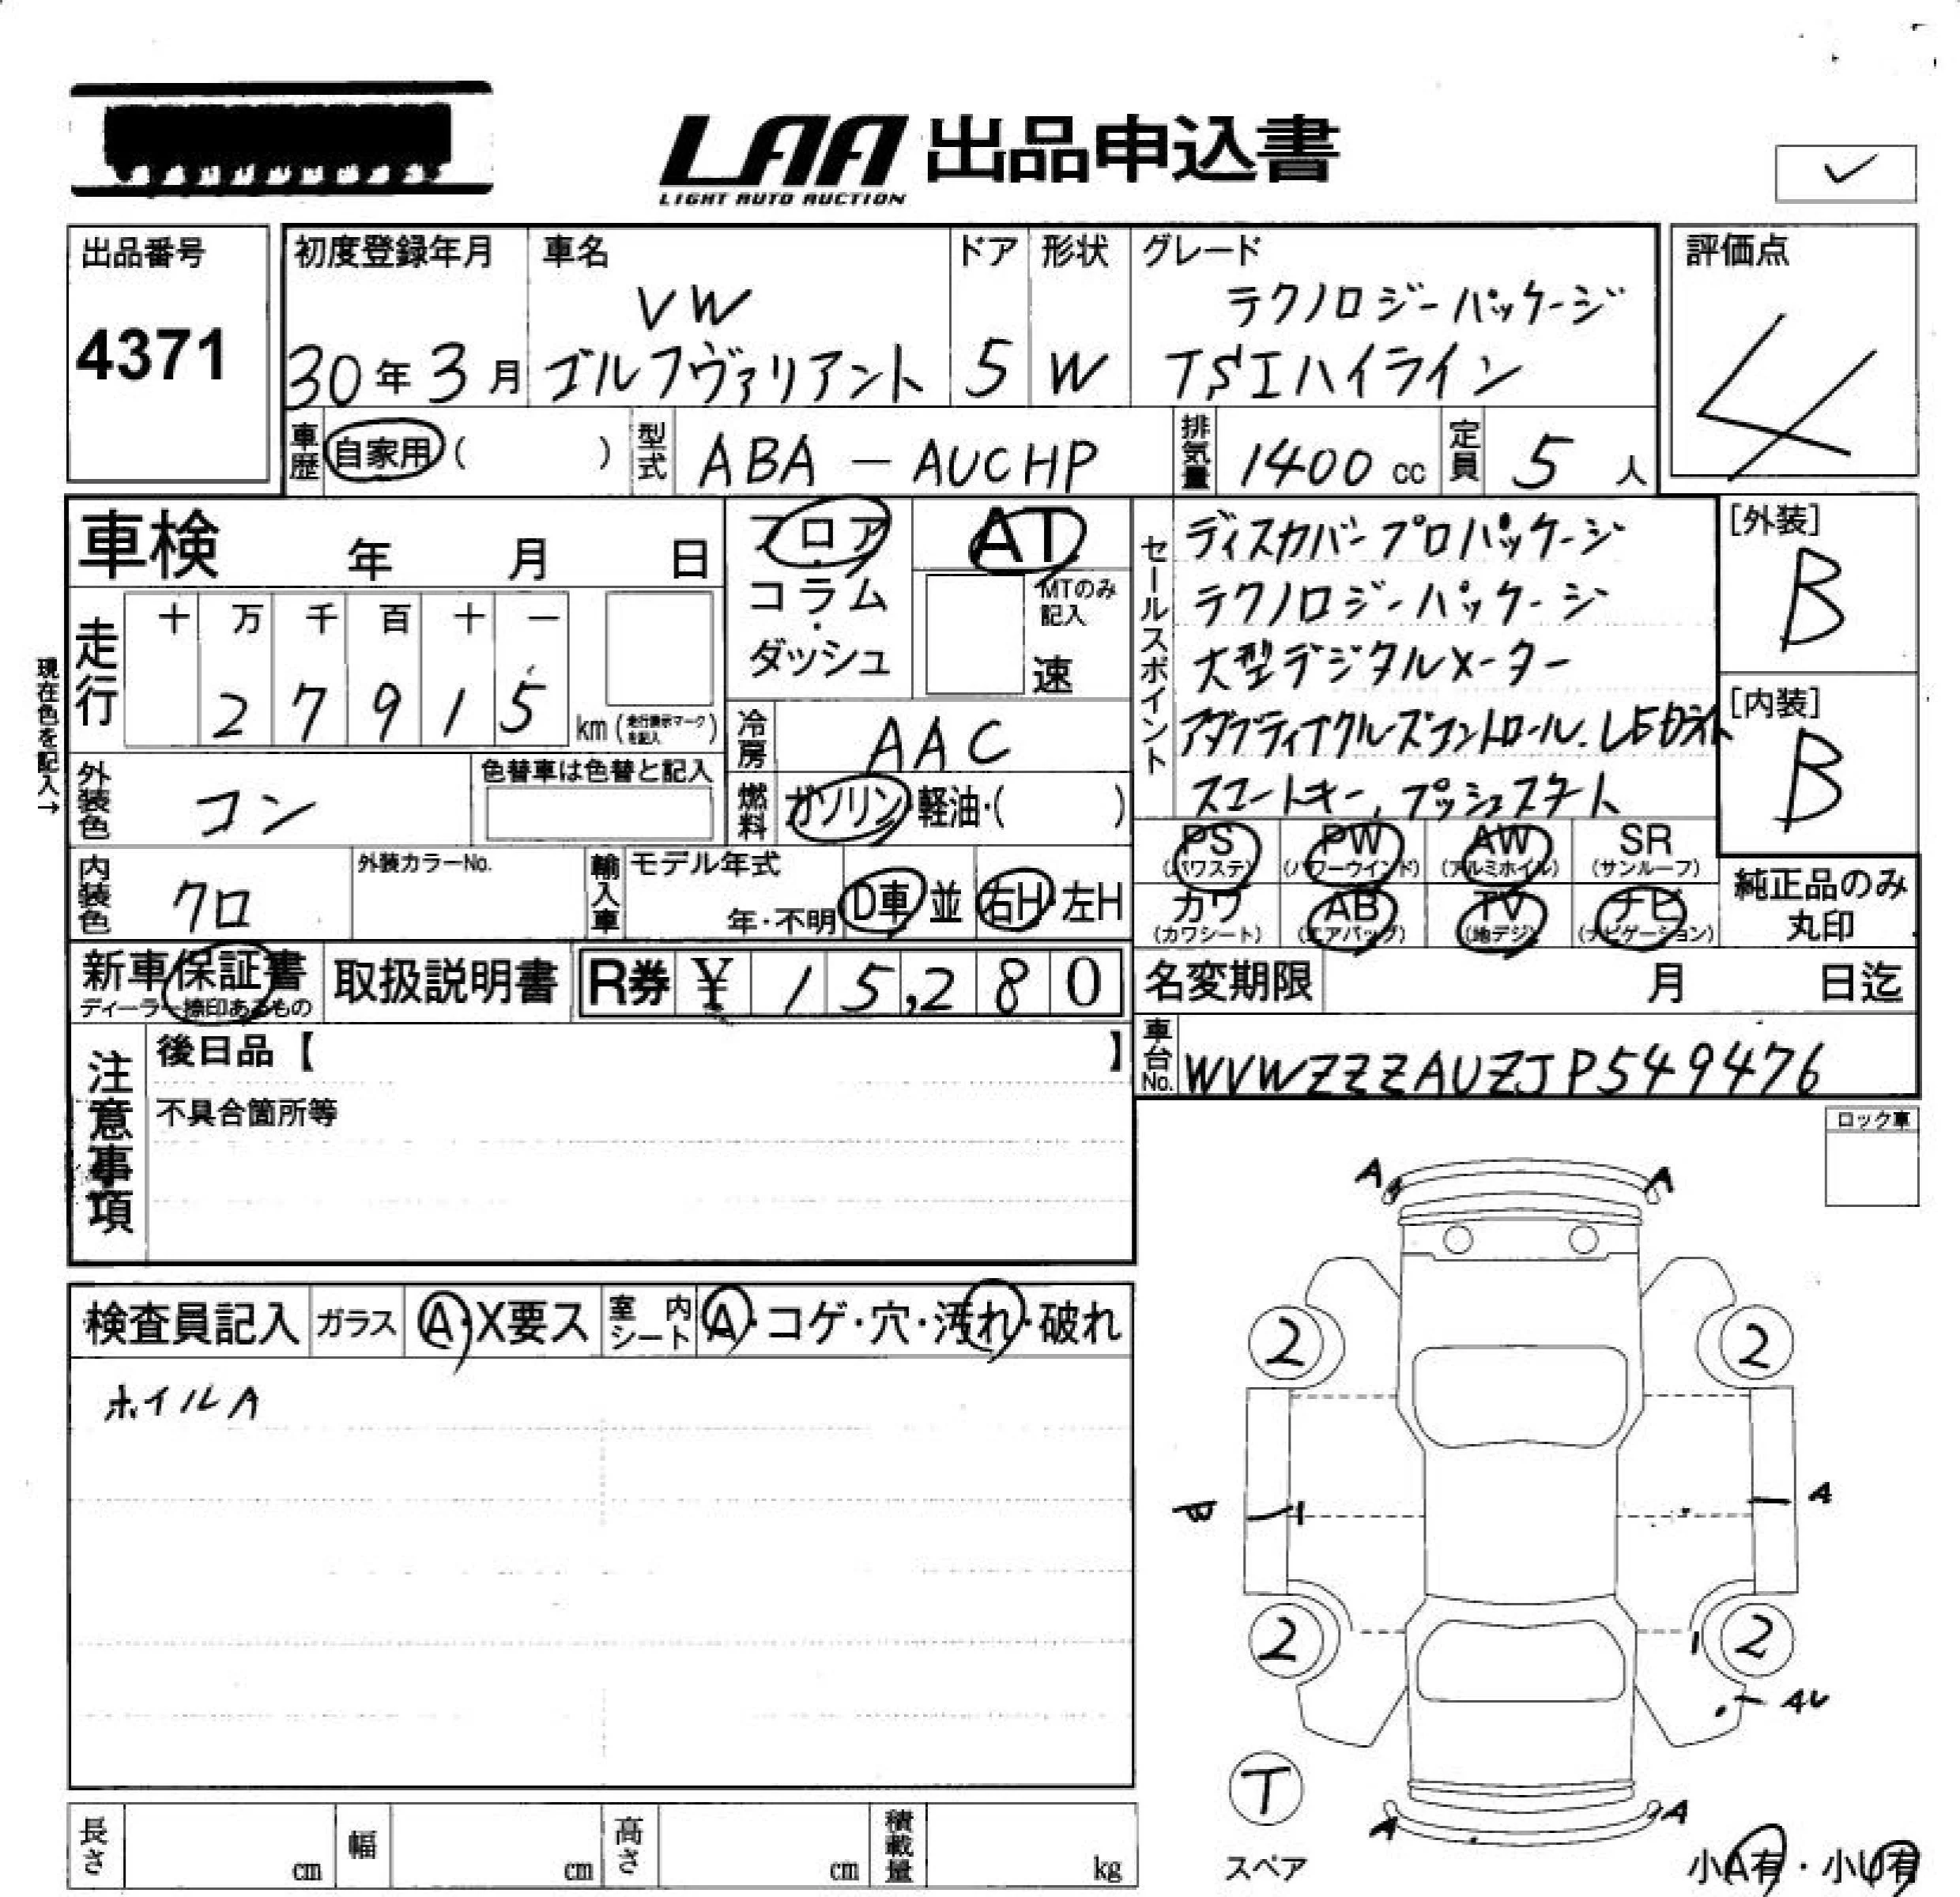 LAA 出品申込書
LIGHT AUTO AUCTION
✓
出品番号
4371
初度登録年月
30年3月
車名
VW
ゴルフヴァリアント
ドア
5
形状
W
グレード
テクノロジーパッケージ
TSIハイライン
評価点
4
車歴 自家用 ( )
型式 ABA-AUCHP
排気量 1400 cc
定員 5 人
車検 年 月 日
走行
十 万 千 百 十 一
2 7 9 1 5
km (走行表示マークを記入)
現在色を記入→
フロア・
コラム・
ダッシュ
AT
MTのみ記入
速
冷房 AAC
燃料 ガソリン・軽油・( )
セールスポイント
ディスカバープロパッケージ
テクノロジーパッケージ
大型デジタルメーター
アダプティブクルーズコントロール.LEDライト
スマートキー,プッシュスタート
[外装]
B
[内装]
B
外装色 コン
色替車は色替と記入
内装色 クロ
外装カラーNo.
輸入車 モデル年式
年・不明
D車・並
右H・左H
PS (パワステ) PW (パワーウインド) AW (アルミホイル) SR (サンルーフ)
カワ (カワシート) AB (エアバッグ) TV (地デジ) ナビ (ナビゲーション)
純正品のみ
丸印
新車保証書
ディーラー捺印あるもの
取扱説明書
R券 ¥ 15,280
名変期限 月 日迄
車台No. WVWZZZAUZJP549476
注意事項
後日品【 】
不具合箇所等
ロック車
検査員記入 ガラス A・X要ス 室内シート A・コゲ・穴・汚れ・破れ
ホイルA
A A
2 2
A
2 2
T
スペア
A A
小A有・小U有
長さ cm 幅 cm 高さ cm 積載量 kg